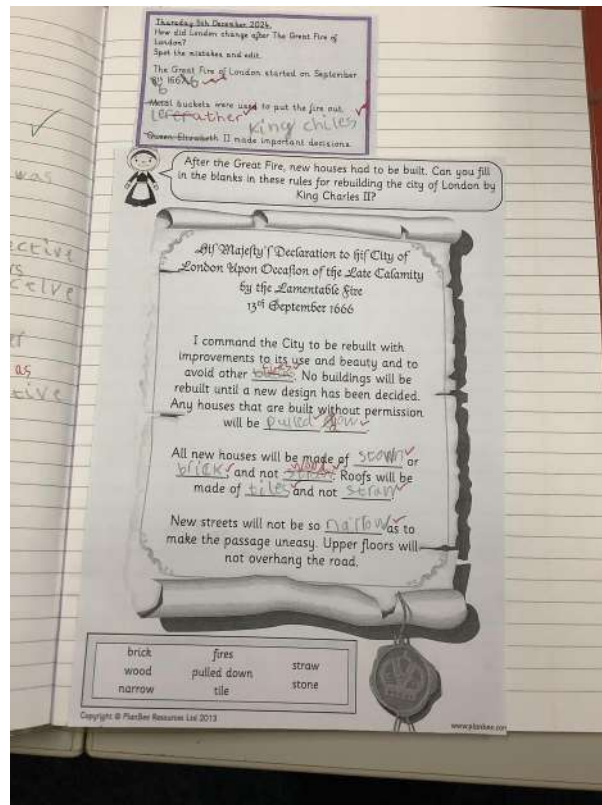 Thursday 5th December 2024
How did London change after The Great Fire of
London?
Spot the mistakes and edit.
The Great Fire of London started on September
1666
6
Metal buckets were used to put the fire out.
leather King chiles
Queen Elizabeth II made important decisions
was
ective
celve
as
tive
After the Great Fire, new houses had to be built. Can you fill
in the blanks in these rules for rebuilding the city of London by
King Charles II?
Hiſ Majeſty'ſ Declaration to hiſ City of
London Upon Occaſion of the Late Calamity
by the Lamentable Fire
13th September 1666
I command the City to be rebuilt with
improvements to its use and beauty and to
avoid other fires. No buildings will be
rebuilt until a new design has been decided.
Any houses that are built without permission
will be pulled down
All new houses will be made of stown or
brick and not wood. Roofs will be
made of tiles and not straw
New streets will not be so narrow as to
make the passage uneasy. Upper floors will
not overhang the road.
brick fires straw
wood pulled down stone
narrow tile
Copyright © PlanBee Resources Ltd 2013
www.planbee.com